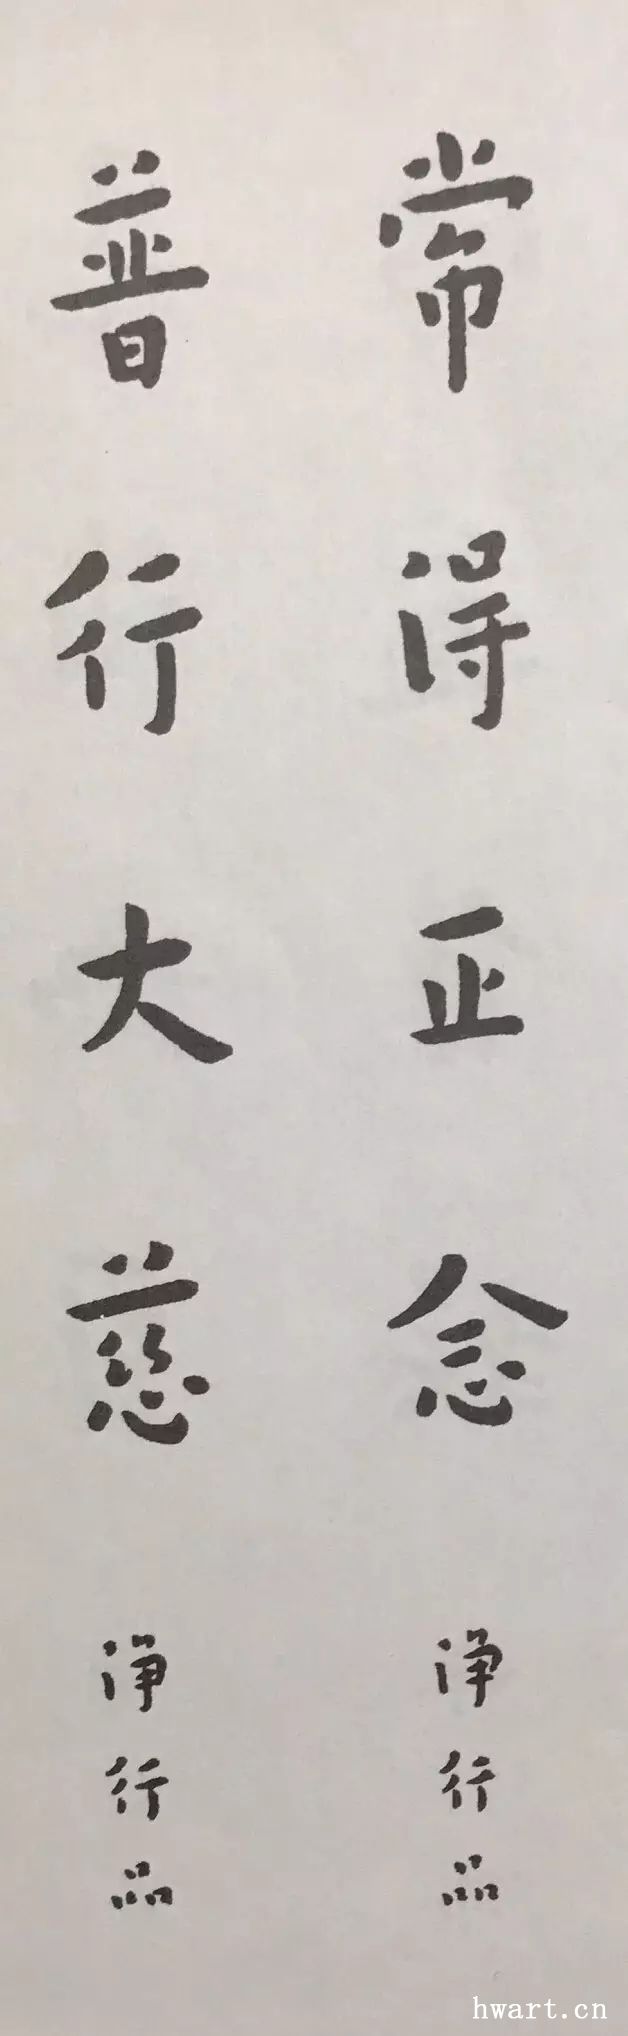 常得正念
淨行品
普行大慈
淨行品
hwart.cn